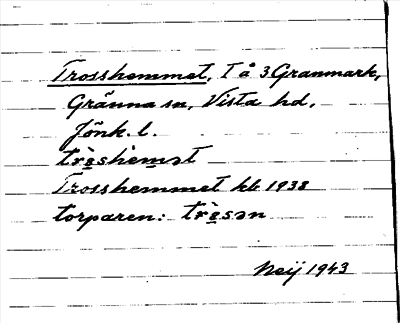 Trosshemmet, T å 3 Granmark,
Gränna sn, Vista hd,
Jönk. l.
trɵ̀shèmət
Trosshemmet kb 1938
torparen: trɵ̀sən
Neij 1943